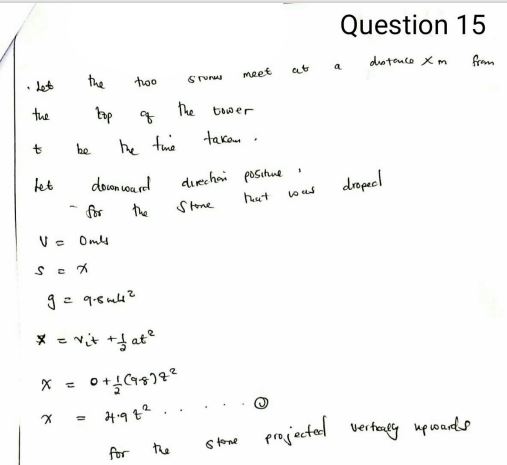 Question 15
. Let the two stones meet at a distance x m from
the top of the tower
t be the time taken.
Let downward direction positive,
- for the stone that was droped
V = 0 m/s
S = x
g = 9.8 m/s²
x = vᵢt + ½ at²
x = 0 + ½ (9.8) t²
x = 4.9 t² . . . . . . ①
for the stone projected vertically upwards